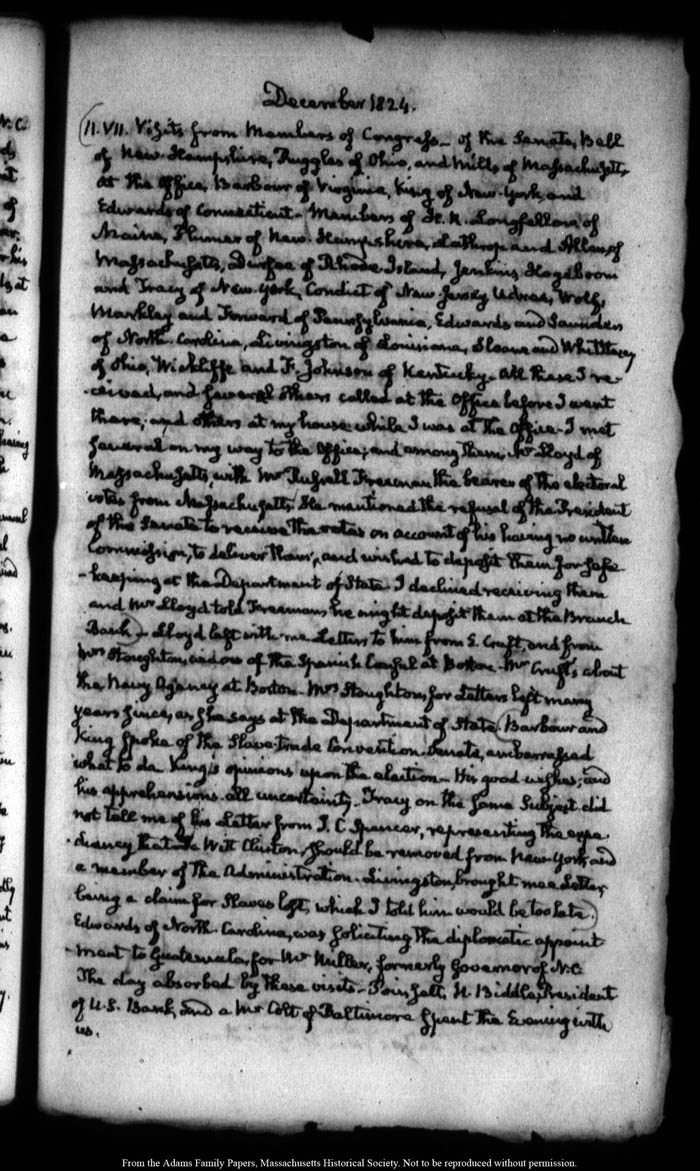 December 1824.
11. VII. Visits from Members of Congress – of the Senate, Bell
of New-Hampshire, Ruggles of Ohio, and Mills of Massachusetts,
at the Office, Barbour of Virginia, King of New-York, and
Edwards of Connecticut – Members of H. R. Longfellow of
Maine, Plumer of New-Hampshire, Lathrop and Allen of
Massachusetts, Durfee of Rhode-Island, Jenkins, Hogeboom
and Tracy of New-York, Condict of New Jersey Udree, Wolf,
Markley and Forward of Pennsylvania, Edwards and Saunders
of North-Carolina, Livingston of Louisiana, Sloane and Whittlesey
of Ohio, Wickliffe and F. Johnson of Kentucky – All these I re-
-ceived, and several others called at the Office before I went
there, and others at my house while I was at the Office – I met
several on my way to the Office; and among them, Mr Lloyd of
Massachusetts, with Mr Russell Freeman the bearer of the electoral
votes from Massachusetts. He mentioned the refusal of the President
of the Senate to receive the votes on account of his having no written
Commission, to deliver them, and wished to deposit them for safe
-keeping at the Department of State. I declined receiving them
and Mr Lloyd told Freeman, he might deposit them at the Branch
Bank – Lloyd left with me Letters to him from E Cruft, and from
Mrs Stoughton, widow of the Spanish Consul at Boston – Mr Cruft's about
the Navy Agency at Boston – Mrs Stoughton, for Letters left many
years since, as she says at the Department of State. Barbour and
King spoke of the Slave-trade Convention. Senate, embarrassed
what to do. King's opinions upon the election – His good wishes; and
his apprehensions. all uncertainty – Tracy on the same Subject. did
not tell me of his Letter from J. C. Spencer, representing the expe-
-diency that De Witt Clinton, should be removed from New-York, and
a member of the Administration. Livingston, brought me a Letter,
being a claim for Slaves lost, which I told him would be too late.
Edwards of North-Carolina, was soliciting the diplomatic appoint-
-ment to Guatemala, for Mr Miller, formerly Governor of N. C.
The day absorbed by these visits – Poinsett, N. Biddle, President
of U.S. Bank, and a Mr Colt of Baltimore spent the Evening with
us.
From the Adams Family Papers, Massachusetts Historical Society. Not to be reproduced without permission.